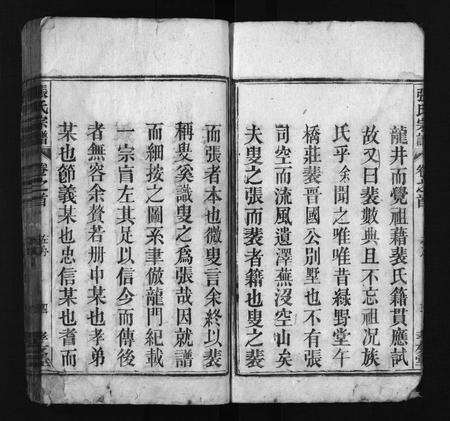 龍井而覺祖藉裴氏籍貫應試
故又曰裴數典且不忘祖况族
氏乎余聞之唯唯昔綠野堂午
橋莊裴晉國公別墅也不有張
司空而流風遺澤蕪沒空山矣
夫叟之張而裴者籍也叟之裴
而張者本也微叟言余終以裴
稱叟矣識叟之爲張哉因就譜
而細按之圖系聿倣龍門紀載
一宗盲左其足以信今而傳後
者無容余贅若册中某也孝弟
某也節義某也忠信某也耆而
張氏宗譜
卷之首
張氏宗譜
卷之首